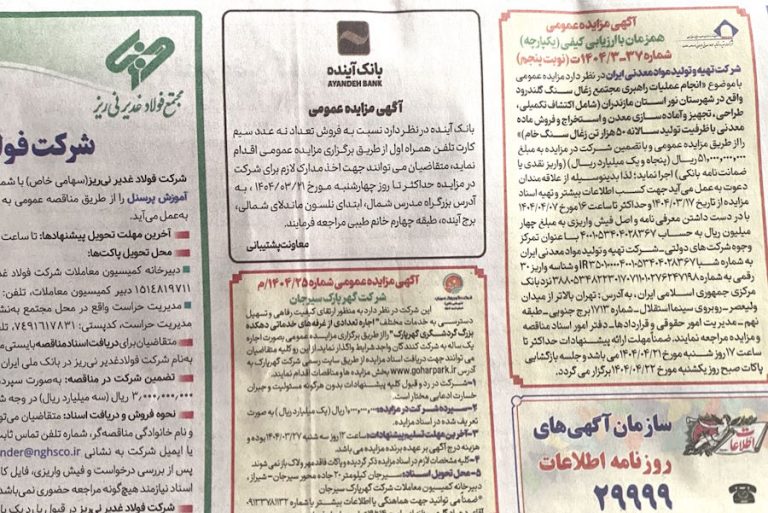 آگهی مزایده عمومی
همزمان با ارزیابی کیفی (یکپارچه)
شماره ۳۷-۱۴۰۴/۳ت (نوبت پنجم)
شرکت تهیه و تولید مواد معدنی ایران در نظر دارد مزایده عمومی
با موضوع «انجام عملیات راهبری مجتمع زغال سنگ گلندرود
واقع در شهرستان نور استان مازندران (شامل اکتشاف تکمیلی،
طراحی، تجهیز و آماده سازی معدن و استخراج و فروش ماده
معدنی با ظرفیت تولید سالانه ۵۰ هزار تن زغال سنگ خام)»
را از طریق مزایده عمومی و با تضمین شرکت در مزایده به مبلغ
۵۱،۰۰۰،۰۰۰،۰۰۰ ریال (پنجاه و یک میلیارد ریال) (واریز نقدی یا
ضمانت نامه بانکی) اجرا نماید؛ لذا بدینوسیله از علاقه مندان
دعوت به عمل می‌آید جهت کسب اطلاعات بیشتر و تهیه اسناد
از تاریخ ۱۴۰۴/۰۳/۱۷ حداکثر تا ساعت ۱۶ مورخ ۱۴۰۴/۰۴/۰۷
با در دست داشتن معرفی نامه و اصل فیش واریزی به مبلغ چهار
میلیون ریال به حساب ۴۰۰۱۰۵۳۴۰۴۰۲۸۳۶۷ با عنوان تمرکز
وجوه شرکت های دولتی - شرکت تهیه و تولید مواد معدنی ایران
به شماره شبا و شناسه واریز ۳۰
رقمی به شماره نزد بانک
مرکزی جمهوری اسلامی ایران، به آدرس: تهران بالاتر از میدان
ولیعصر - روبروی سینما استقلال - شماره ۱۷۱۳ برج جنوبی - طبقه
نهم - مدیریت امور حقوقی و قراردادها - دفتر امور اسناد مناقصه
و مزایده مراجعه نمایند. ضمناً مهلت ارائه پیشنهادات حداکثر تا
ساعت ۱۷ روز شنبه مورخ ۱۴۰۴/۰۴/۲۱ می باشد و جلسه بازگشایی
پاکات صبح روز یکشنبه مورخ ۱۴۰۴/۰۴/۲۲ برگزار می گردد.
سازمان آگهی‌های
روزنامه اطلاعات
۲۹۹۹۹
اطلاعات
بانک آینده
AYANDEH BANK
آگهی مزایده عمومی
بانک آینده در نظر دارد نسبت به فروش تعداد نه عدد سیم
کارت تلفن همراه اول از طریق برگزاری مزایده عمومی اقدام
نماید، متقاضیان می توانند جهت اخذ مدارک لازم برای شرکت
در مزایده حداکثر تا روز چهارشنبه مورخ ۱۴۰۴/۰۳/۲۱ به
آدرس بزرگراه مدرس شمال، ابتدای نلسون ماندلای شمالی،
برج آینده، طبقه چهارم خانم طیبی مراجعه فرمایند.
معاونت پشتیبانی
آگهی مزایده عمومی شماره ۱۴۰۴/۲۵/م
شرکت گهرپارک سیرجان
این شرکت در نظر دارد به منظور ارتقای کیفیت رفاهی و تسهیل
دسترسی به خدمات مختلف "اجاره تعدادی از غرفه‌های خدماتی دهکده
بزرگ گردشگری گهرپارک" را از طریق برگزاری مزایده عمومی بصورت اجاره
یک ساله به شرکت کنندگان واجد شرایط واگذار نماید. از این رو کلیه متقاضیان
می توانند جهت دریافت اسناد مزایده از طریق سایت رسمی شرکت گهرپارک به
آدرس www.goharpark.ir بخش مزایده ها و مناقصات اقدام نمایند.
۱- شرکت در رد و قبول کلیه پیشنهادات بدون هرگونه مسئولیت و جبران
خسارت ادعایی مختار است.
۲- سپرده شرکت در مزایده: ۱،۰۰۰،۰۰۰،۰۰۰ ریال (یک میلیارد ریال) به صورت
تعریف شده در اسناد مزایده.
۳- آخرین مهلت تسلیم پیشنهادات: تا ساعت ۱۲ روز سه شنبه ۱۴۰۴/۰۳/۲۷ بوده و
هزینه درج آگهی بر عهده برنده مزایده می باشد.
۴- کلیه مشخصات لازم در اسناد مزایده ذکر گردیده و پاکات فاقد مهر و لاک باز نمی شوند.
۵- محل تحویل اسناد: سیرجان کیلومتر ۲۰ جاده محور سیرجان - شیراز،
دبیرخانه کمیسیون معاملات شرکت گهرپارک سیرجان
"ضمناً می توانید جهت هماهنگی یا اطلاعات بیشتر با شماره ۰۹۱۳۳۷۸۱۱۳۲
مجتمع فولاد غدیر نی ریز
شرکت فولا
شرکت فولاد غدیر نی‌ریز (سهامی خاص) با شما
آموزش پرسنل را از طریق مناقصه عمومی به
به‌عمل می‌آید.
آخرین مهلت تحویل پیشنهادها: تا ساعت
محل تحویل پاکت‌ها:
دبیرخانه کمیسیون معاملات شرکت فولاد غد
۱۵۱۴۸۱۹۷۱۱ دبیر کمیسیون معاملات، تلفن:
مدیریت حراست واقع در محل مجتمع به‌نش
مدیریت حراست، کدپستی: ۷۴۹۱۶۱۷۸۳۱، تلفن
متقاضیان برای دریافت اسناد مناقصه بایستی م
به‌نام شرکت فولاد غدیر نی ریز در بانک ملی ایران
تضمین شرکت در مناقصه: به‌صورت سپرد
۳،۰۰۰،۰۰۰،۰۰۰ ریال (سه میلیارد ریال) در وجه ش
نحوه فروش و دریافت اسناد: متقاضیان می‌توا
و نام خانوادگی مناقصه‌گر، شماره تلفن تماس ثابت
یا ایمیل شرکت به نشانی nder@nghsco.ir
پس از بررسی درخواست و فیش واریزی، فایل کا
اسناد نیازمند هیچ‌گونه مراجعه حضوری نمی‌باشد
شرکت در قبول یا رد یک